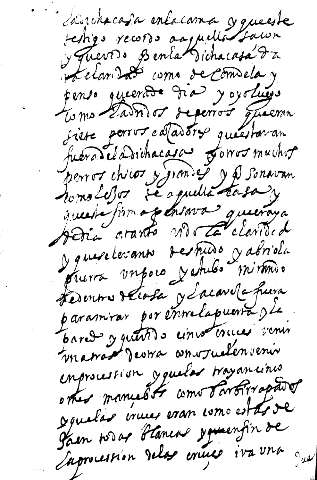 la dicha casa en la cama y que este
testigo recordo a aquella sazon
y que vido en la dicha casa gra
claridad como de candela y
penso que era de dia y oyo luego
como ladridos de perros que eran
siete perros caçadores que estavan
fuera de la dicha casa y otros muchos
perros chicos y grandes y que sonavan
como lexos de aquella casa y
que este firmo pensava que era ya
de dia atanto vido la claridad
y que se levanto desnudo y abriola
puerta un poco y estubo mirando
de dentro de casa y la caveza fuera
para mirar por entre la puerta y la
pared y que vido cinco cruces venir
una tras de otra como suelen venir
en procession y que las trayan cinco
omes mancebos como barbirrapados
y que las cruces eran como estas de
Jaen todas blancas y que en fin de
la procession de las cruces iva una